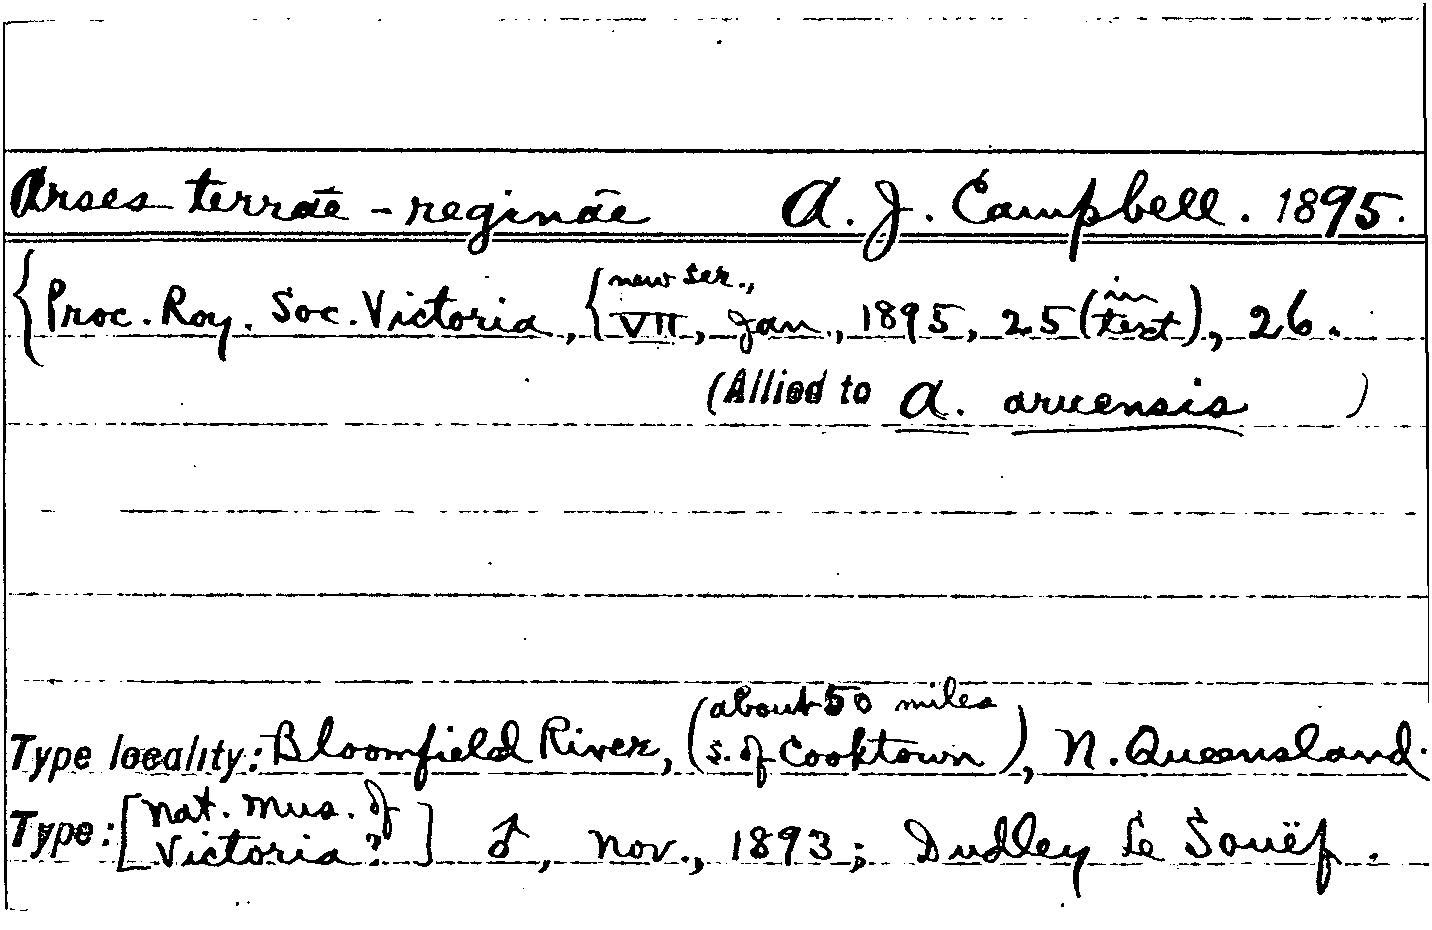 Arses terrae-reginae A. J. Campbell. 1895.
{Proc. Roy. Soc. Victoria, {new ser., VII, Jan., 1895, 25 (in text), 26.
(Allied to A. aruensis )
Type locality: Bloomfield River, (about 50 miles s. of Cooktown), N. Queensland.
Type: [Nat. Mus. of Victoria?] ♂, Nov., 1893; Dudley Le Souëf.